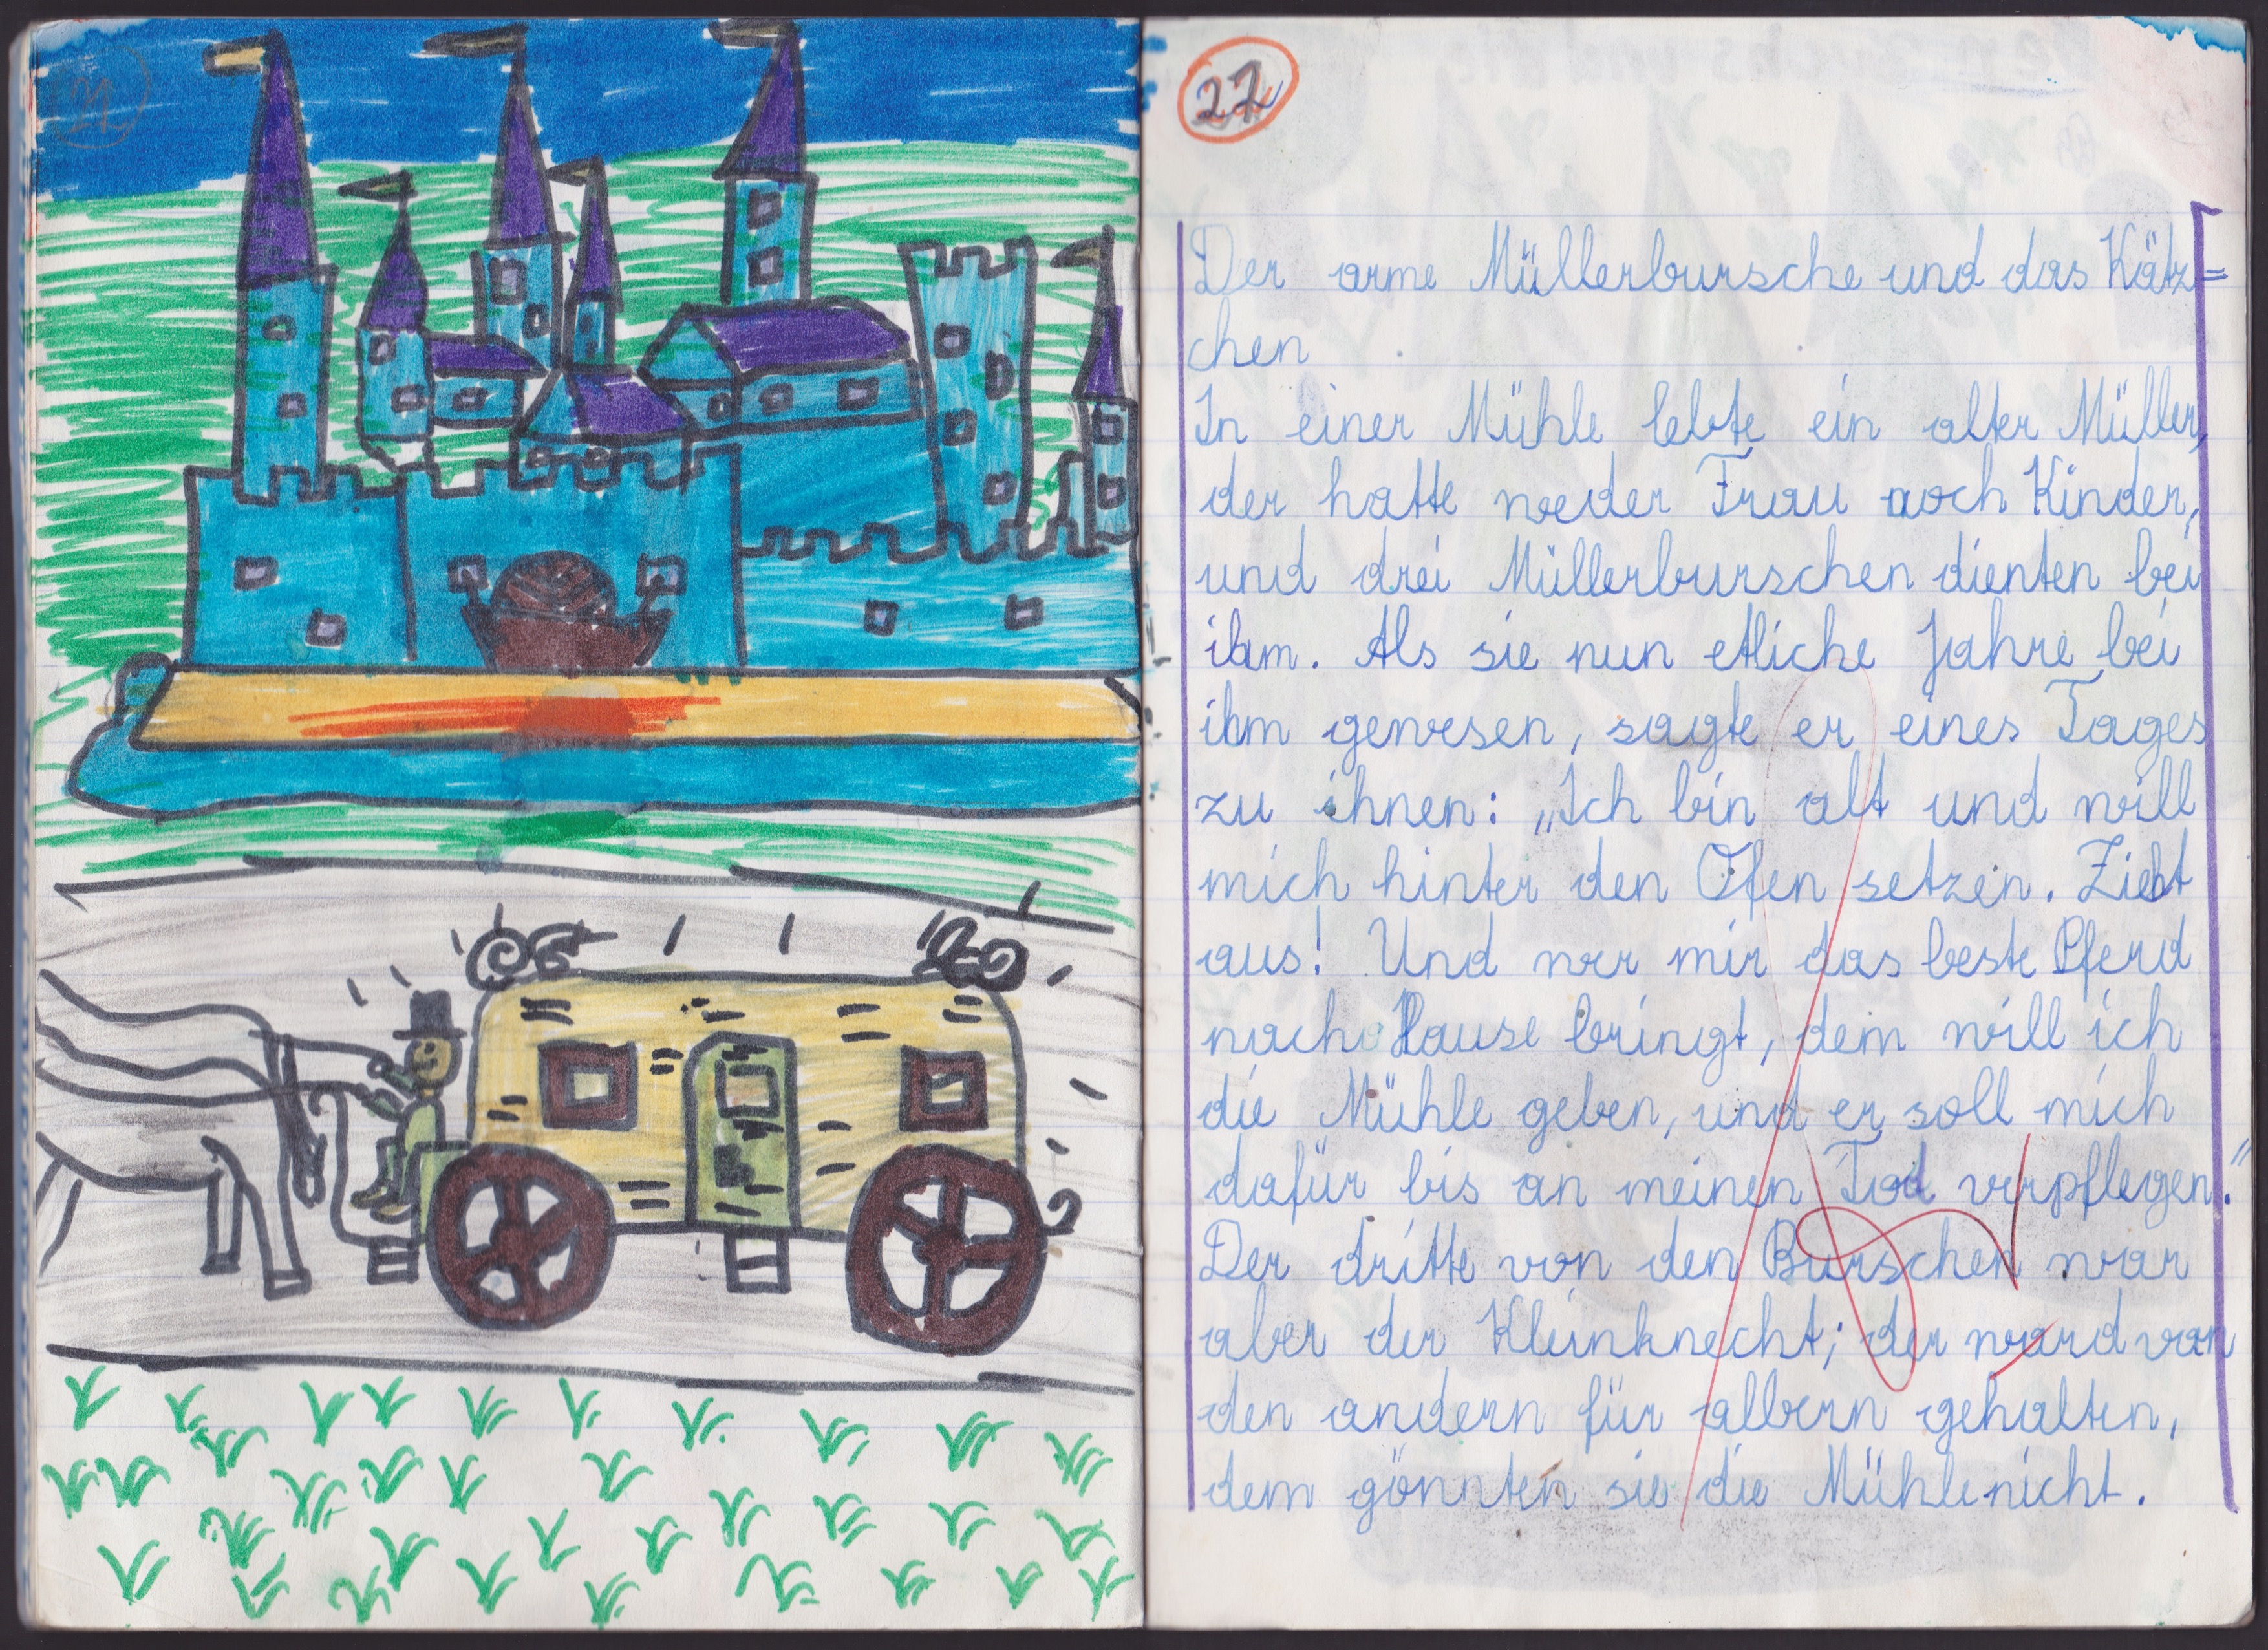 21
22
Der arme Müllerbursche und das Kätz=
chen
In einer Mühle lebte ein alter Müller,
der hatte weder Frau noch Kinder,
und drei Müllerburschen dienten bei
ihm. Als sie nun etliche Jahre bei
ihm gewesen, sagte er eines Tages
zu ihnen: „Ich bin alt und will
mich hinter den Ofen setzen. Zieht
aus! Und wer mir das beste Pferd
nach Hause bringt, dem will ich
die Mühle geben, und er soll mich
dafür bis an meinen Tod verpflegen."
Der dritte von den Burschen war
aber der Kleinknecht; der ward von
den andern für albern gehalten,
dem gönnten sie die Mühle nicht.